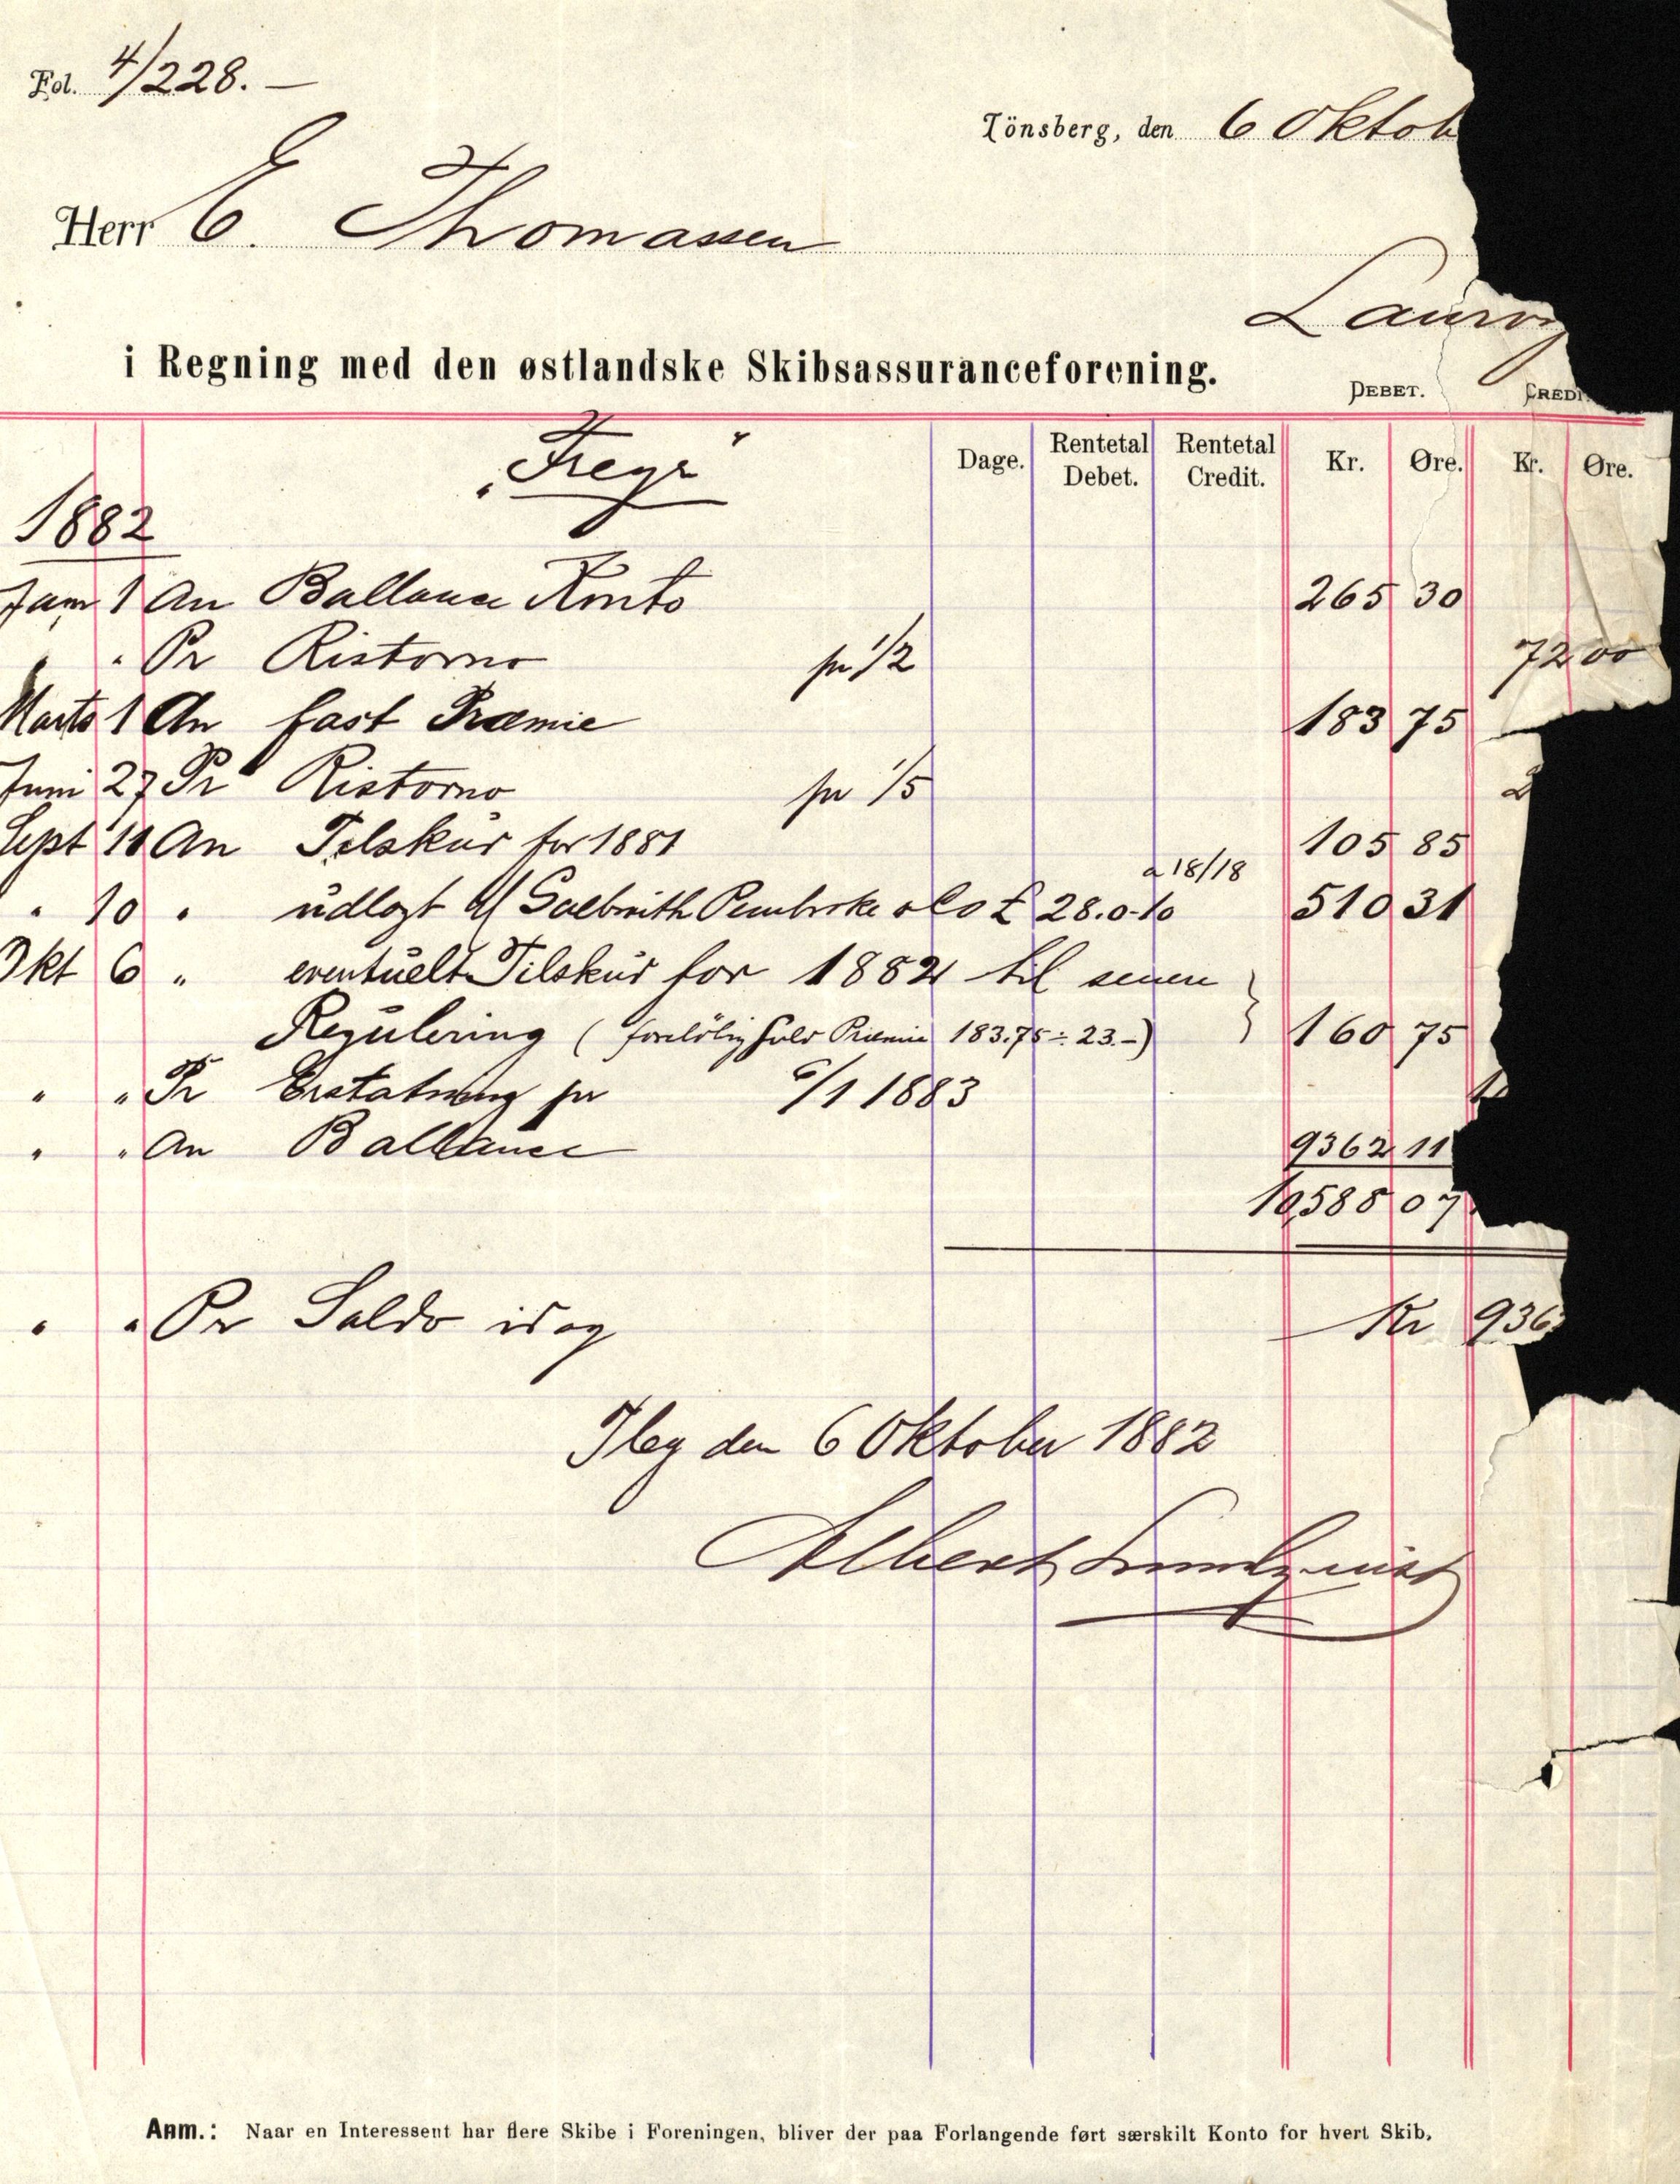 Fol. 4/228.—
Tönsberg, den 6 Oktob
Herr E. Thomassen
Laurvi
i Regning med den østlandske Skibsassuranceforening.
DEBET. CREDI
„Freyr"
Dage. Rentetal Debet. Rentetal Credit. Kr. Øre. Kr. Øre.
1882
Jan 1 An Ballance Konto 265 30
" Pr Ristorno pr 1/2 72 00
Marts 1 An fast Præmie 183 75
Juni 27 Pr Ristorno pr 1/5 2
Sept 10 An Tilskud for 1881 105 85
" 10 " udlagt Galbraith Pembroke & Co £ 28.0.10 a 18/18 510 31
Okt 6 " eventuelt Tilskud for 1882 til senere
Regulering (foreløbig Præmie 183.75 ÷ 23.-) 160 75
" " Pr Erstatning pr 6/1 1883
" " An Ballance 9362 11
10588 07
" " Pr Saldo idag Kr 936
Tbg den 6 Oktober 1882
Albert
Anm.: Naar en Interessent har flere Skibe i Foreningen, bliver der paa Forlangende ført særskilt Konto for hvert Skib.